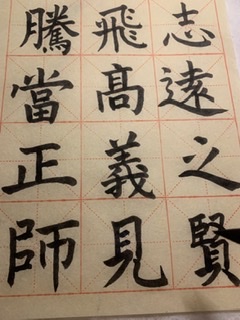 志遠之賢
飛高義見
騰當正師